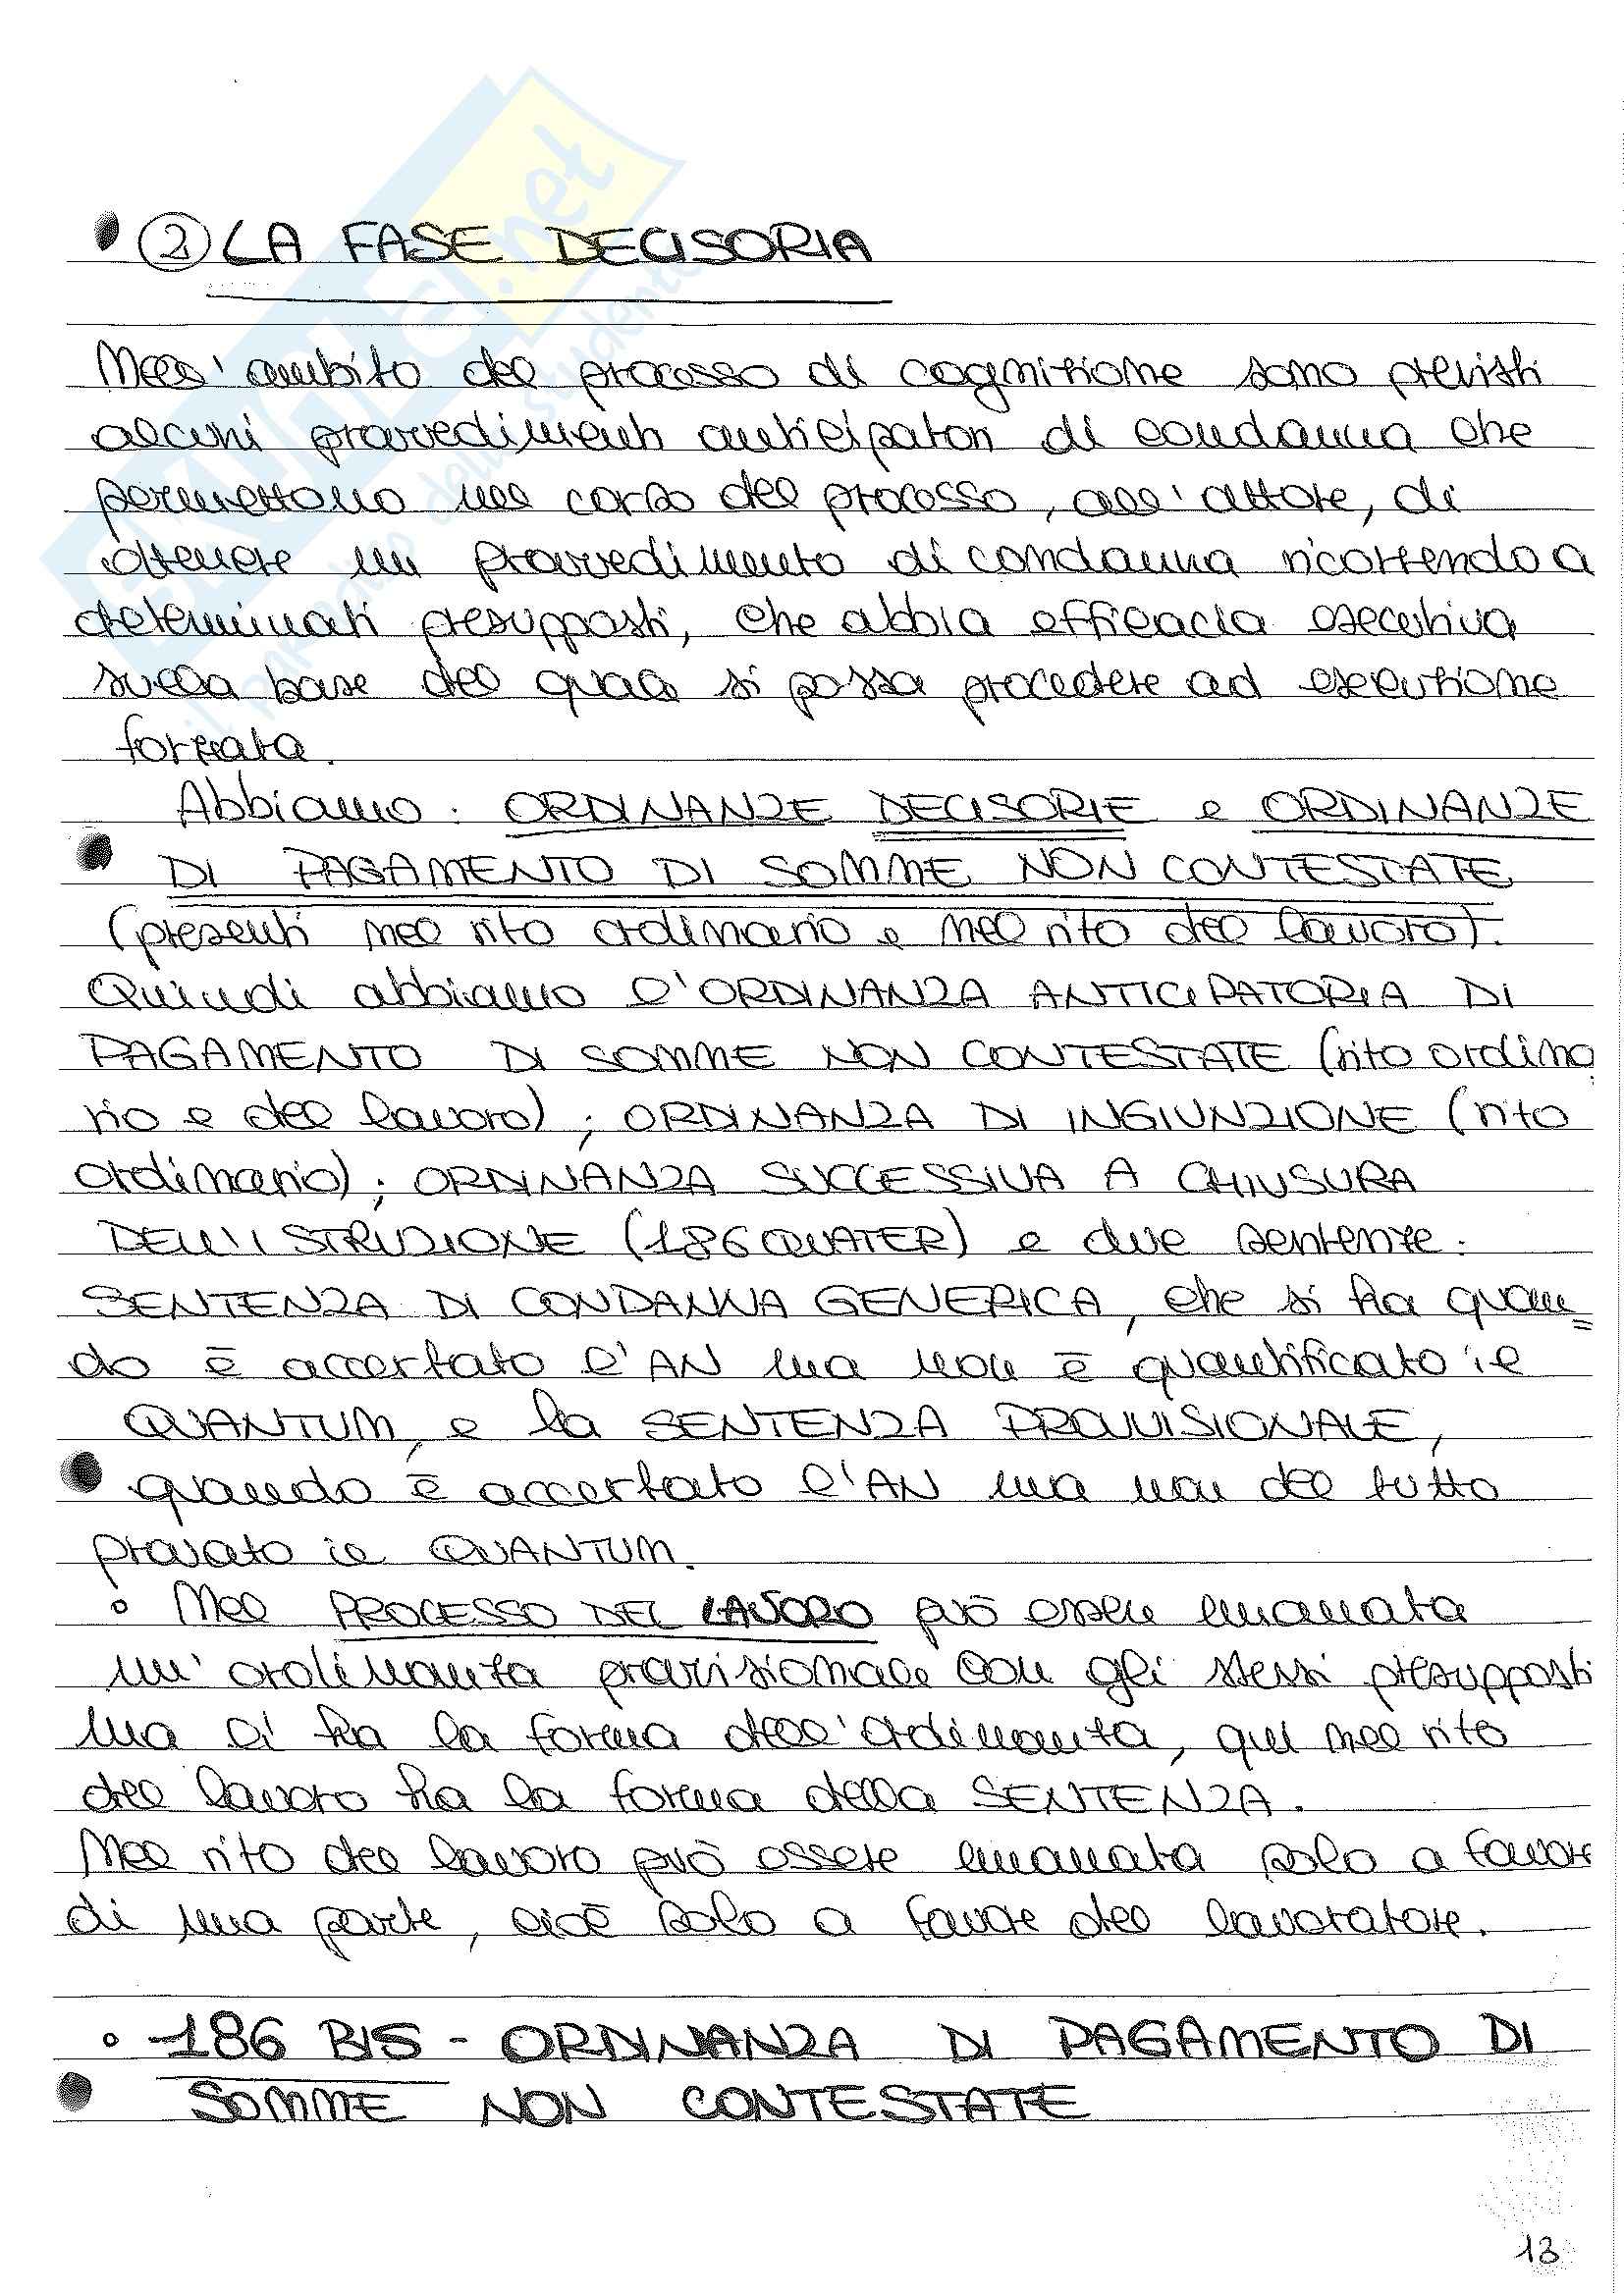 ② LA FASE DECISORIA
Nell'ambito del processo di cognizione sono previsti
alcuni provvedimenti anticipatori di condanna che
permettono nel corso del processo, all'attore, di
ottenere un provvedimento di condanna ricorrendo a
determinati presupposti, che abbia efficacia esecutiva
sulla base del quale si possa procedere ad esecuzione
forzata.
Abbiamo: ORDINANZE DECISORIE e ORDINANZE
DI PAGAMENTO DI SOMME NON CONTESTATE
(presenti nel rito ordinario e nel rito del lavoro).
Quindi abbiamo l'ORDINANZA ANTICIPATORIA DI
PAGAMENTO DI SOMME NON CONTESTATE (rito ordina
rio e del lavoro); ORDINANZA DI INGIUNZIONE (rito
ordinario); ORDINANZA SUCCESSIVA A CHIUSURA
DELL'ISTRUZIONE (186 QUATER) e due sentenze:
SENTENZA DI CONDANNA GENERICA, che si ha quan=
do è accertato l'AN ma non è quantificato il
QUANTUM, e la SENTENZA PROVVISIONALE,
quando è accertato l'AN ma non del tutto
provato il QUANTUM.
° Nel PROCESSO DEL LAVORO può essere emanata
un'ordinanza provvisionale con gli stessi presupposti
ma lì ha la forma dell'ordinanza, qui nel rito
del lavoro ha la forma della SENTENZA.
Nel rito del lavoro può essere emanata solo a favore
di una parte, cioè solo a favore del lavoratore.
° -186 BIS - ORDINANZA DI PAGAMENTO DI
SOMME NON CONTESTATE
13